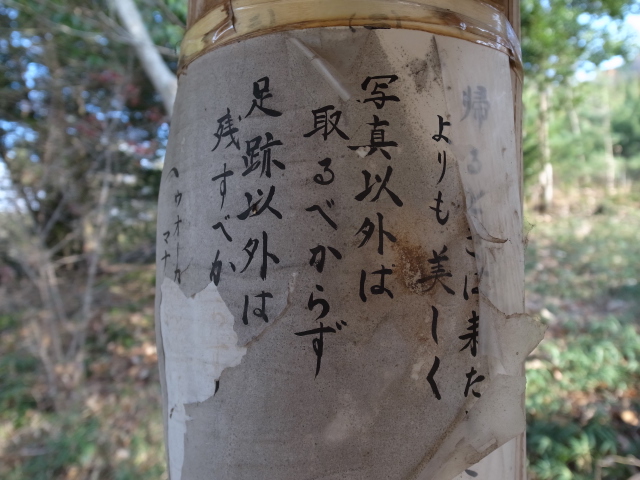 帰る
こは来た
よりも美しく
写真以外は
取るべからず
足跡以外は
残すべか
ヘウオーカ
マナ